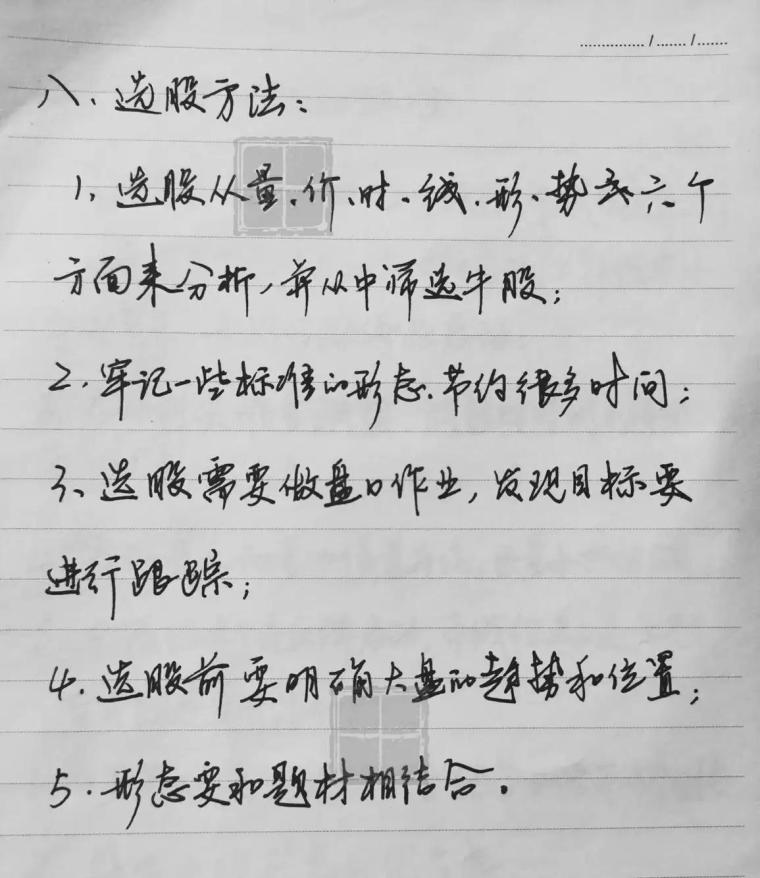 八、选股方法:
1、选股从量、价、时、线、形、势这六个
方面来分析,并从中筛选牛股;
2、牢记一些标准的形态、节约很多时间;
3、选股需要做盘口作业,发现目标要
进行跟踪;
4、选股前要明确大盘的趋势和位置;
5、形态要和题材相结合。